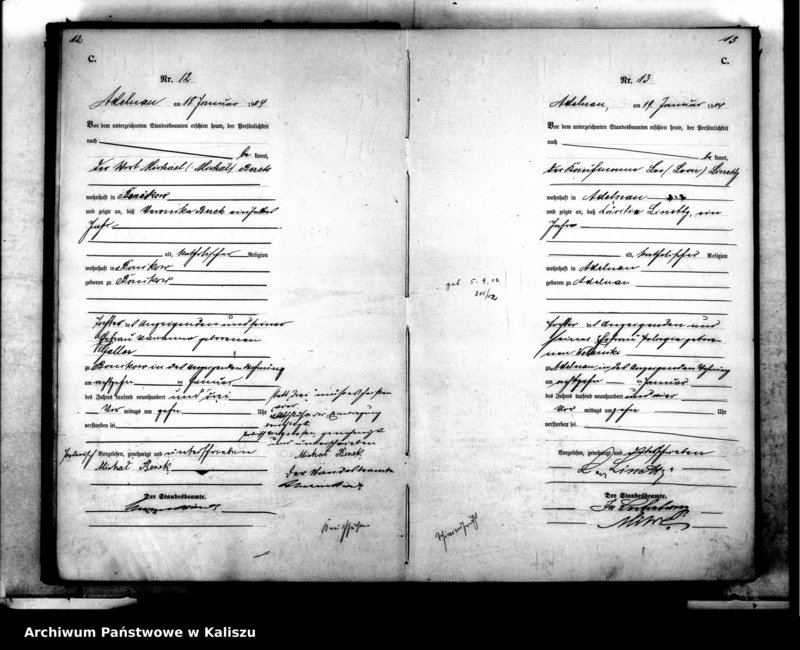 12
C.
Nr. 12
Adelnau am 18 Januar 1904
Vor dem unterzeichneten Standesbeamten erschien heute, der Persönlichkeit
nach
be kannt,
der Wirt Michael (Michał)
wohnhaft in Bonikow
und zeigte an, daß Veronika
Jahr
alt, katholischer Religion
wohnhaft in Bonikow
geboren zu Bonikow
Tochter des Anzeigenden und seiner
Ehefrau Marianna geborenen
zu Bonikow in des Anzeigenden Wohnung
am achtzehn ten Januar
des Jahres tausend neunhundert und drei
Vor mittags um zehn Uhr
verstorben sei
Vorgelesen, genehmigt und unterschrieben
Michał
Der Standesbeamte.
statt "drei" muss es heissen
vier
vorgelesen genehmigt
und unterschrieben
Michał
Der Standesbeamte
13
C.
Nr. 13
Adelnau, am 19. Januar 1904
Vor dem unterzeichneten Standesbeamten erschien heute, der Persönlichkeit
nach
be kannt,
der Kaufmann Leo (Leon) Linetty
wohnhaft in Adelnau
und zeigte an, daß Cäcilie Linetty, ein
Jahr
alt, katholischer Religion
wohnhaft in Adelnau
geboren zu Adelnau
geb. 5. 9. 02
301/02
Tochter des Anzeigenden und
seiner Ehefrau Pelagia gebore-
nen
zu Adelnau, in des Anzeigenden Wohnung
am achtzehn ten Januar
des Jahres tausend neunhundert und vier
Vor mittags um zehn Uhr
verstorben sei
Vorgelesen, genehmigt und unterschrieben
Linetty.
Der Standesbeamte.
In Vertretung
Archiwum Państwowe w Kaliszu